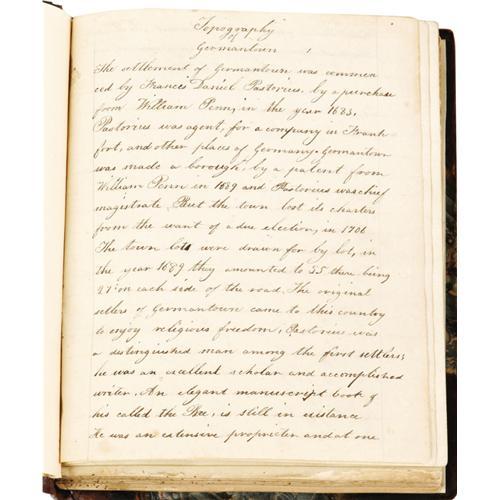 Topography
of
Germantown
The settlement of Germantown was commen
ced by Francis Daniel Pastorius, by a purchase
from William Penn, in the year 1683,
Pastorius was agent, for a company in Frank
fort, and other places of Germany. Germantown
was made a borough, by a patent from
William Penn in 1689 and Pastorius was chief
magistrate But the town lost its charters
from the want of a due election, in 1706
The town lots were drawn for by lot, in
the year 1689 they amounted to 55 there being
27 on each side of the road. The original
setlers of Germantown came to this country
to enjoy religious freedom, Pastorius was
a distinguished man among the first settlers;
he was an excellent scholar and accomplished
writer. An elegant manuscript book of
his called the Bee, is still in existance
He was an extensive proprieter and at one